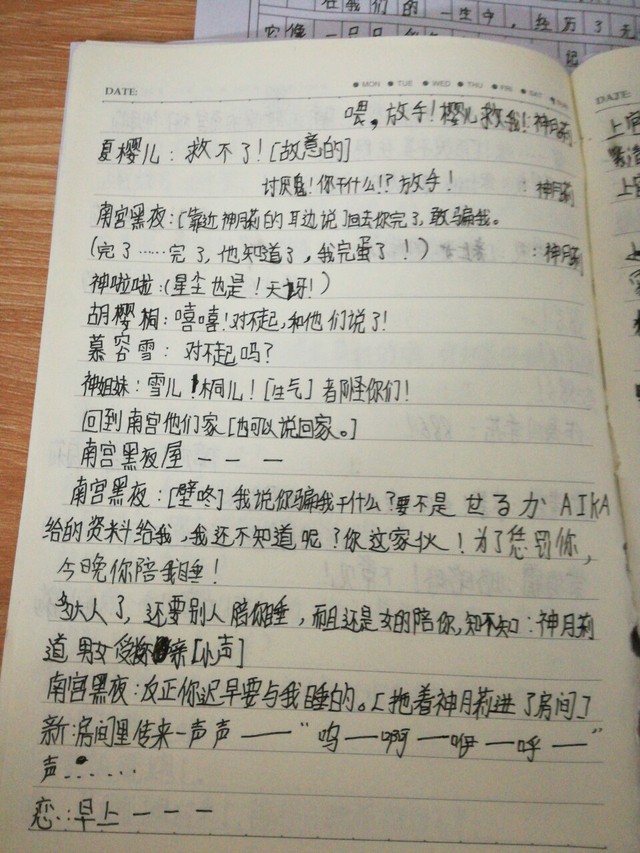 在我们的一生中，经历了无
它像一只只
记
DATE:
MON TUE WED THU FRI SAT SUN
喂，放手！樱儿救我！：神月莉
夏樱儿：救不了！[故意的]
讨厌鬼！你干什么！？放手！：神月莉
南宫黑夜：[靠近神月莉的耳边说]回去你完了，敢骗我。
(完了……完了，他知道了，我完蛋了！)：神月莉
神啦啦：(星尘也是！天呀！)
胡樱桐：嘻嘻！对不起，和他们说了！
慕容雪：对不起吗？
神姐妹：雪儿！桐儿！[生气]都怪你们！
回到南宫他们家[也可以说回家。]
南宫黑夜屋 — — —
南宫黑夜：[壁咚]我说你骗我干什么？要不是せるか AIKA
给的资料给我，我还不知道呢？你这家伙！为了惩罚你，
今晚你陪我睡！
多大人了，还要别人陪你睡，而且还是女的陪你，知不知：神月莉
道男女 亲[小声]
南宫黑夜：反正你迟早要与我睡的。[拖着神月莉进了房间]
新：房间里传来一声声——“呜—啊—咿—呼—”
声……
恋：早上 — — —
DATE:
上官
上官